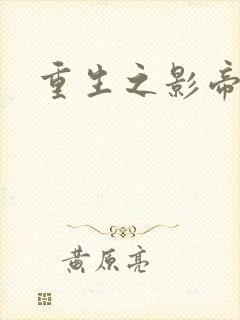 重生之影帝
黄原亮